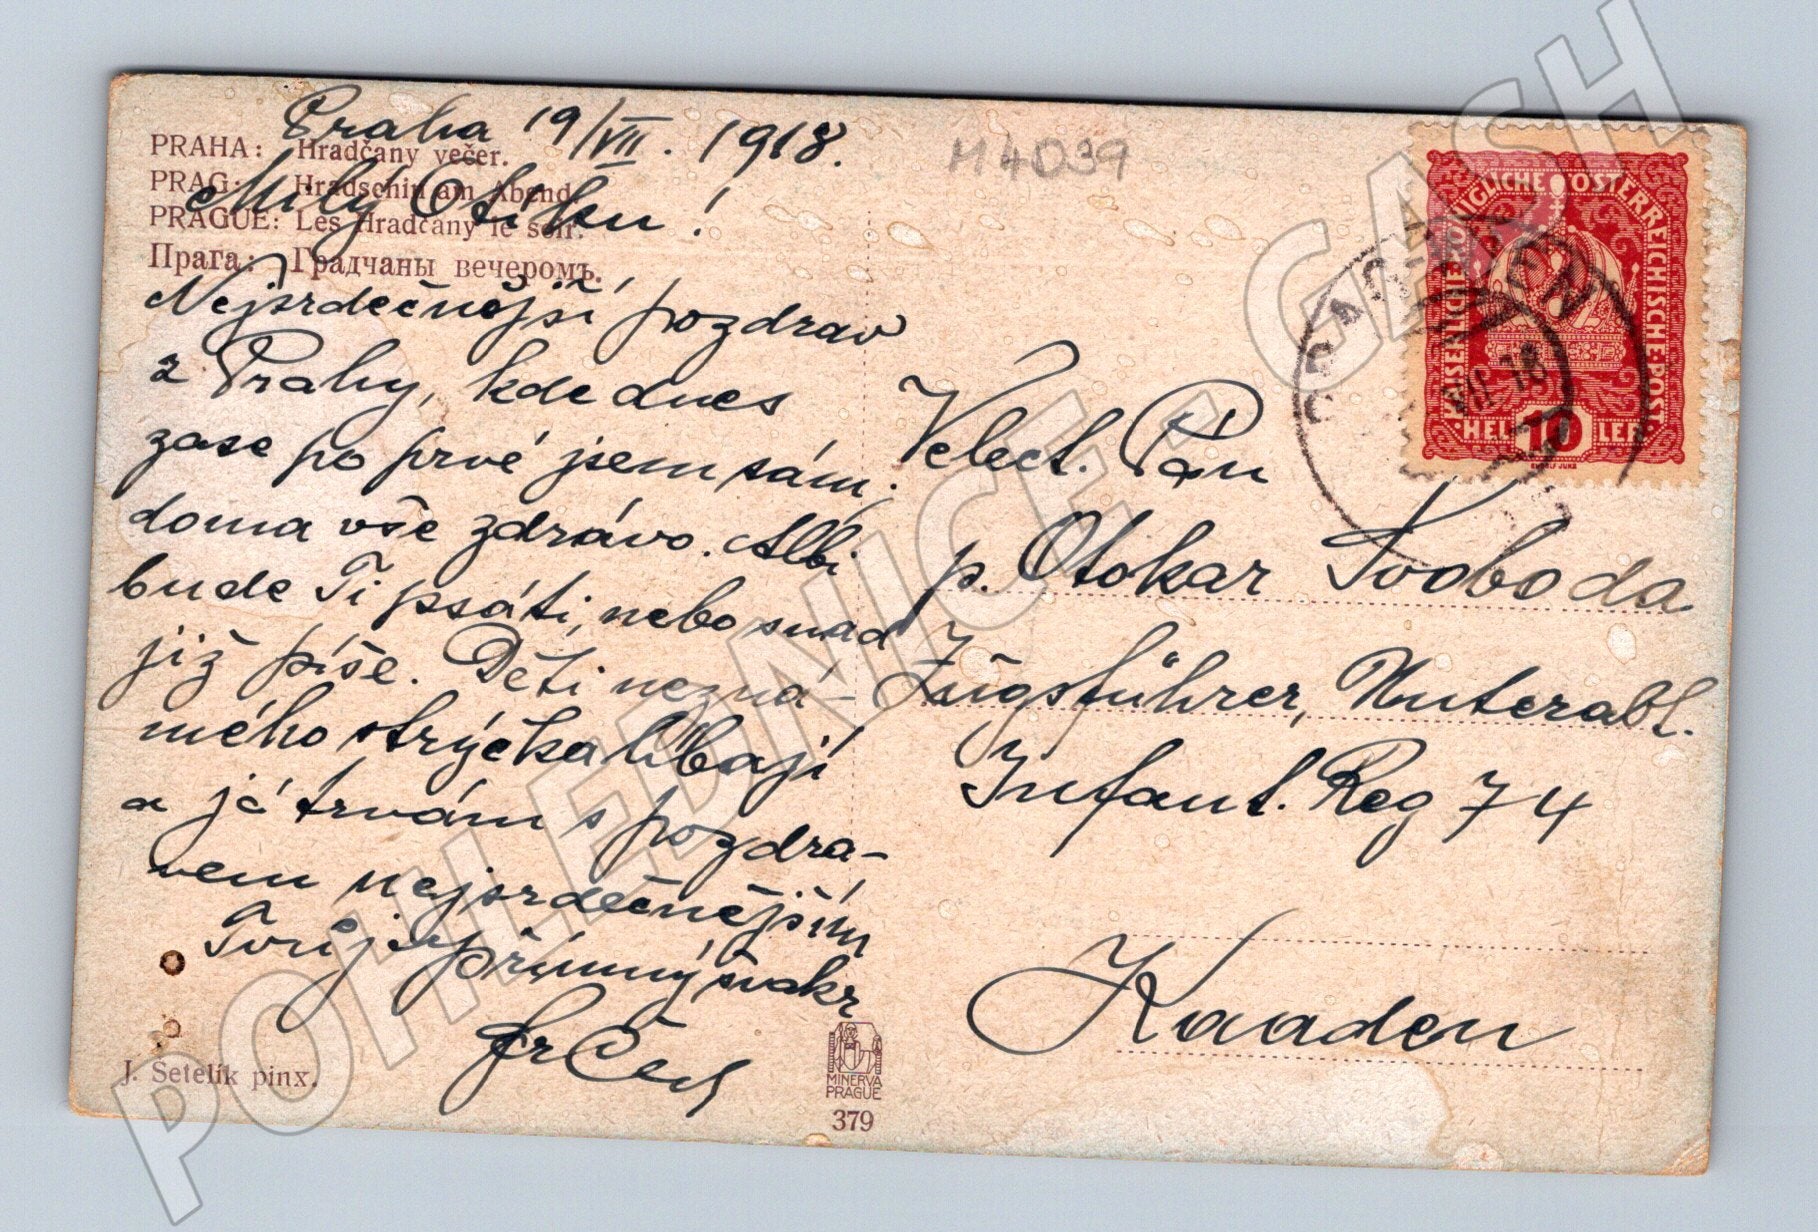 Praha 19/VII. 1918.
PRAHA: Hradčany večer.
PRAG: Hradschin am Abend.
PRAGUE: Les Hradčany le soir.
Прага: Градчаны вечеромъ.
Milý Otíku!
Nejsrdečnější pozdrav
z Prahy, kde dnes
zase po prvé jsem sám;
doma vše zdrávo. Albi
bude Ti psáti, nebo snad
již píše. Děti nezná-
mého strýčka líbají
a já trvám s pozdra-
vem nejsrdečnějším
Tvůj upřímný švakr
Fr
J. Setelík pinx.
MINERVA
PRAGUE
379
M4D39
KAISERLICHE KÖNIGLICHE ÖSTERREICHISCHE POST
10
HELLER
VII 18
Velect. Pán
p. Otokar Svoboda
Zugsführer, Unterabt.
Infant. Reg 74
Kaaden
POHLEDNICE - GASH